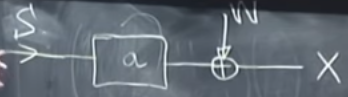 S
a
W
X